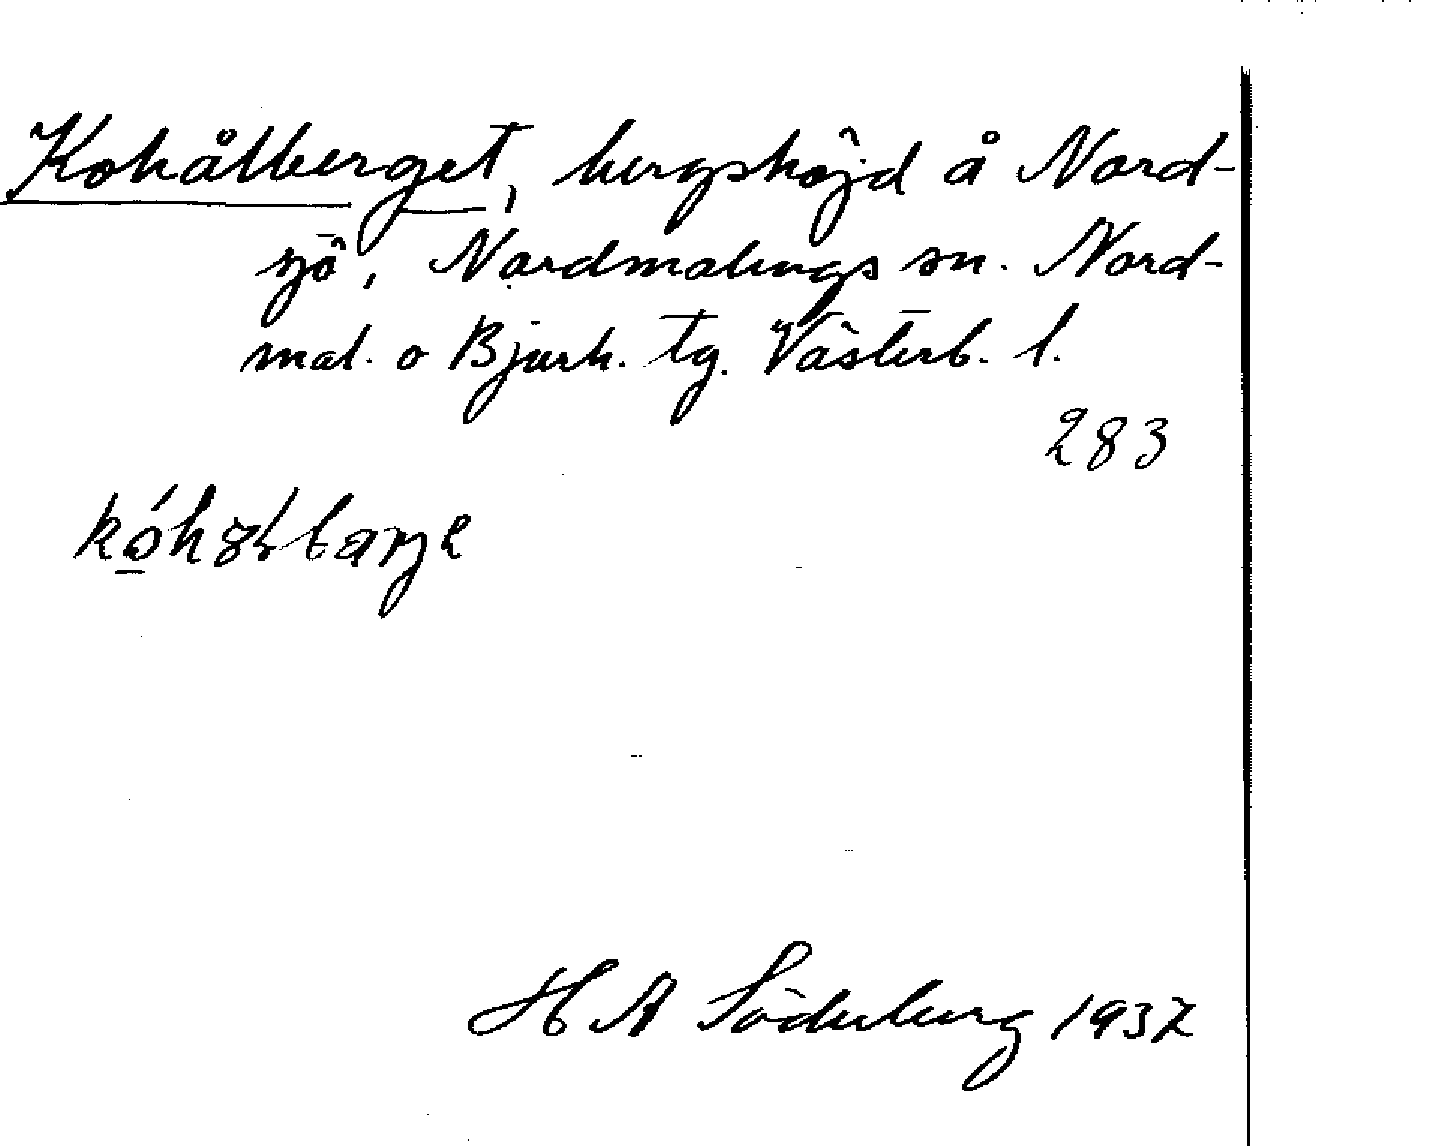 Kohålberget, bergshöjd å Nord-
sjö, Nordmalings sn. Nord-
mal. o Bjurh. tg. Västerb. l.
283
H A Söderberg 1937